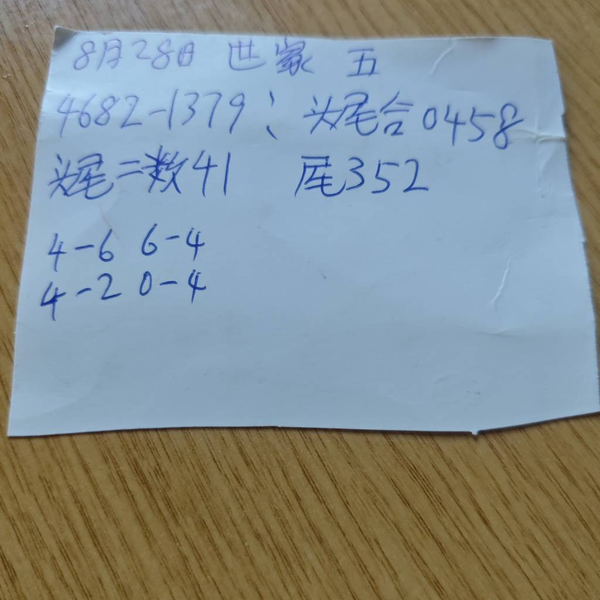 8月28日 世家 五
4682-1379; 头尾合0458
头尾二数41 尾352
4-6 6-4
4-2 0-4